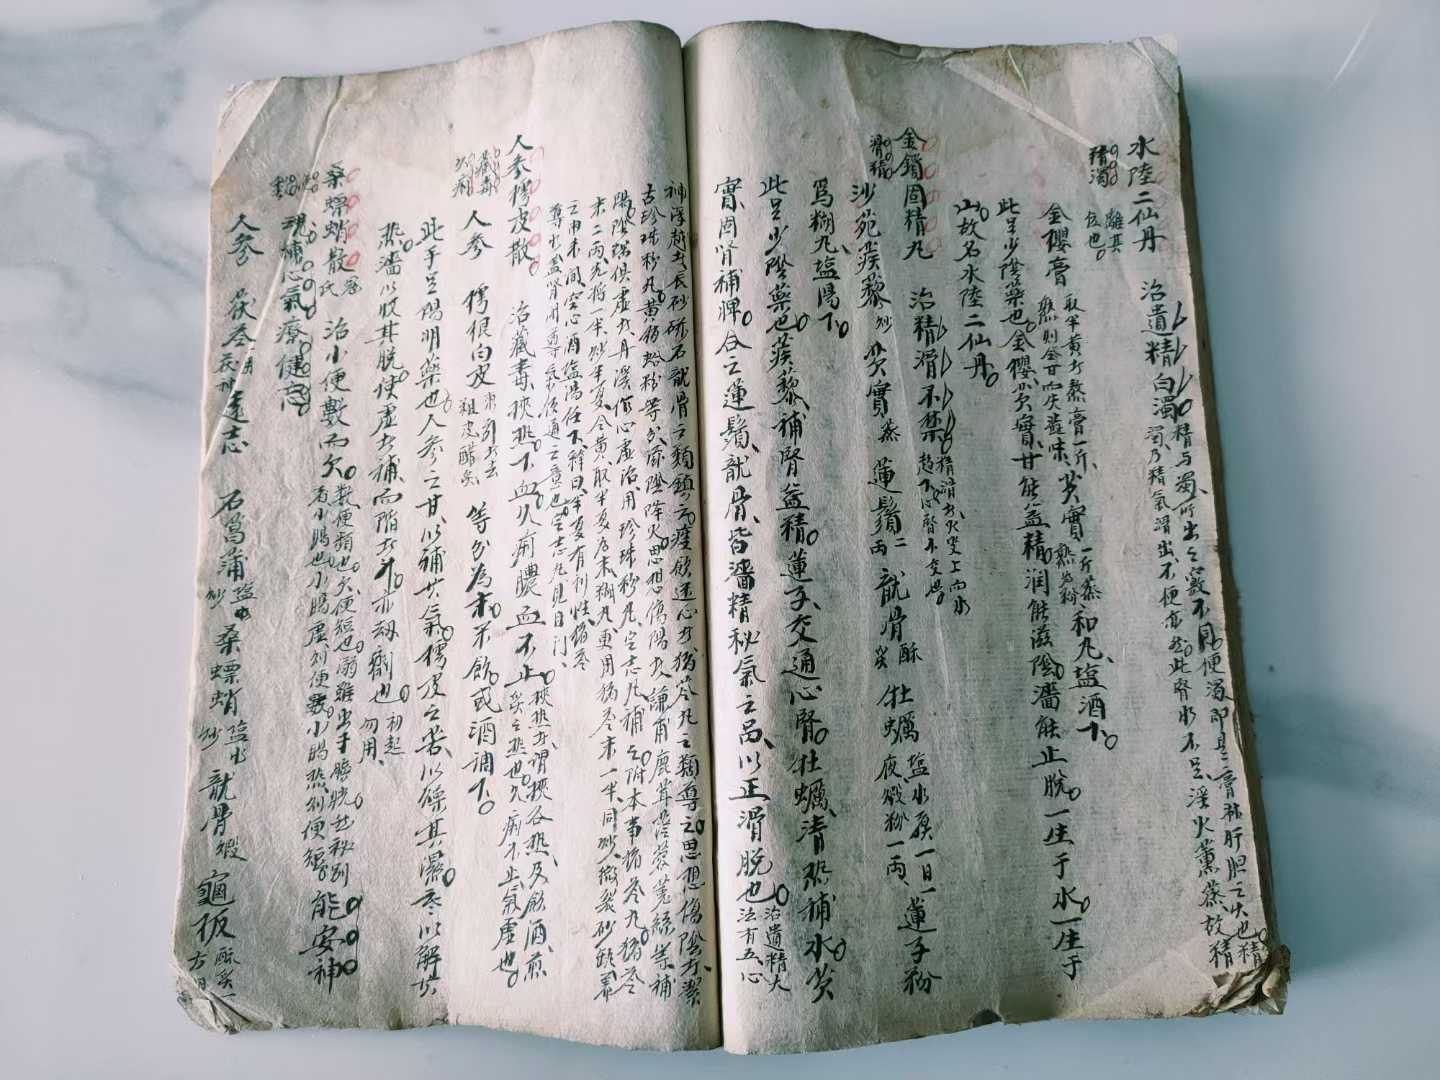 水陸二仙丹
精濁
治遺精白濁
精与濁所出之竅不同便濁即是膏淋肝胆之火也精
濁乃精氣滑出不梗亦然此腎水不足淫火薰蒸故精
離其
位也
金櫻膏
取半黃者熬膏一斤
熟則全甘而失澁味
芡實
一斤蒸
熟為粉
和丸塩酒下
此足少隂藥也金櫻芡實甘能益精润能滋隂濇能止脫一生于水一生于
山故名水陸二仙丹
金鎖固精丸
滑精
治精滑不禁
精滑者火炎上而水
趋下心腎不交也
沙苑蒺藜
炒
芡實
蒸
蓮鬚
二
兩
龍骨
酥
炙
牡蠣
塩水煮一日一
夜煅粉一兩
蓮子粉
爲糊丸塩湯下
此足少隂藥也蒺藜補腎益精蓮子交通心腎牡蠣清熱補水芡
實固腎補脾合之蓮鬚龍骨皆濇精秘氣之品以止滑脫也
治遺精大
法有五心
神浮越者辰砂磁石龍骨之類鎮之痰飲迷心者猪苓丸之類導之思想傷隂者潔
古珍珠粉丸黃柏蛤粉等分滋隂降火思想傷陽者謙甫鹿茸蓯蓉菟絲等補
陽隂陽俱虚者丹溪作心虚治用珍珠粉丸定志丸補之附本事猪苓丸猪苓
末二兩先將一半炒半夏令黃取半夏為末糊丸更用猪苓末一半同炒微裂砂瓶養
之申未間空心酒塩湯任下釋曰半夏有利性猪苓
導水盖腎閉導氣使通之意也定志丸見目门
人参樗皮散
臟毒
久痢
治臟毒挾热下血久痢膿血不止
挾热者謂挾谷热及飲酒煎
炙之热也久痢不止氣虚也
人参
樗根白皮
東引者去
粗皮醋炙
等分為末米飲或酒调下
此手足陽明藥也人参之甘以補其氣樗皮之苦以燥其濕寒以解其
热濇以收其脫使虚者補而陷者升亦劫劑也
初起
勿用
桑螵蛸散
寇
氏
治小便數而欠
數便頻也欠便短也溺雖出于膀胱然秘別
者小腸也小腸虚则便數小腸热则便短
能安神
魂補心氣療健忘
人参
茯苓
遠志
石菖蒲
塩
炒
桑螵蛸
塩水
炒
龍骨
煆
龜板
酥炙一